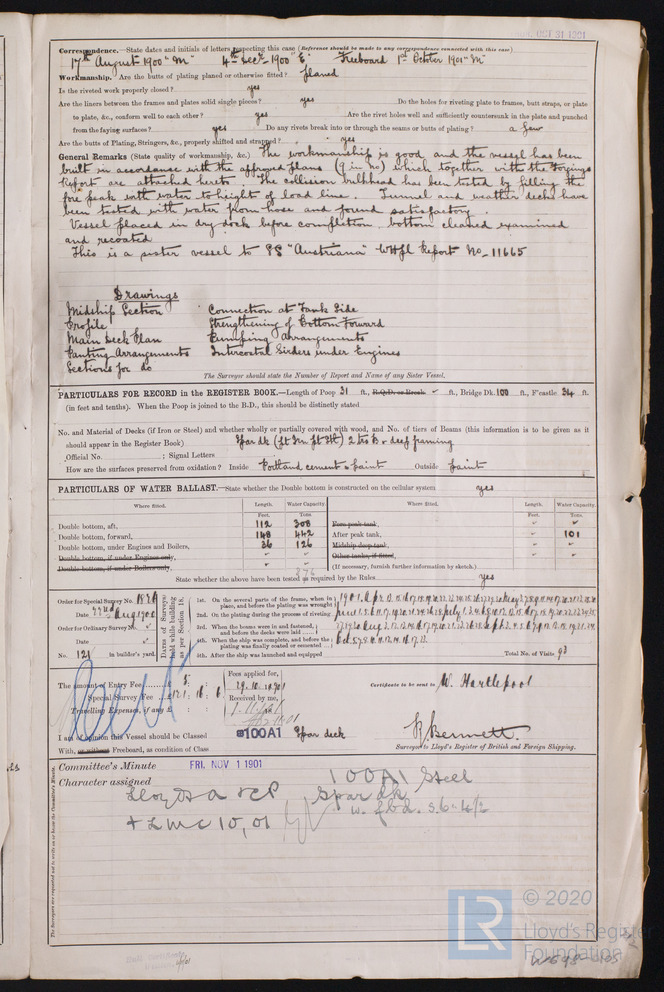 OCT 31 1901
Correspondence.—State dates and initials of letters respecting this case (Reference should be made to any correspondence connected with this case)
17th August 1900 "M" 4th Decr 1900 E. Freeboard 1st October 1901 "M"
Workmanship. Are the butts of plating planed or otherwise fitted? planed
Is the riveted work properly closed? yes
Are the liners between the frames and plates solid single pieces? yes Do the holes for riveting plate to frames, butt straps, or plate
to plate, &c., conform well to each other? yes Are the rivet holes well and sufficiently countersunk in the plate and punched
from the faying surfaces? yes Do any rivets break into or through the seams or butts of plating? a few
Are the butts of Plating, Stringers, &c., properly shifted and strapped? yes
General Remarks (State quality of workmanship, &c.) The workmanship is good and the vessel has been
built in accordance with the approved plans (9 in no) which together with the Forgings
Report are attached hereto. The collision bulkhead has been tested by filling the
fore peak with water to height of load line. Tunnel and weather decks have
been tested with water from hose and found satisfactory.
Vessel placed in dry dock before completion bottom cleaned examined
and recoated
This is a sister vessel to SS "Austriana" WHpl Report No 11665
Drawings
Midship Section Connection at Tank Side
Profile Strengthening of Bottom Forward
Main Deck Plan Pumping Arrangements
Panting Arrangements Intercostal Girders under Engines
Sections for do
The Surveyor should state the Number of Report and Name of any Sister Vessel.
PARTICULARS FOR RECORD in the REGISTER BOOK.—Length of Poop 31 ft., R.Q.D. or Break ft., Bridge Dk. 100 ft., F'castle 34 ft.
(in feet and tenths). When the Poop is joined to the B.D., this should be distinctly stated
No. and Material of Decks (if Iron or Steel) and whether wholly or partially covered with wood, and No. of tiers of Beams (this information is to be given as it
should appear in the Register Book) Spar dk 2 & deep framing
Official No. ; Signal Letters
How are the surfaces preserved from oxidation? Inside Portland cement & paint Outside paint
PARTICULARS OF WATER BALLAST.—State whether the Double bottom is constructed on the cellular system yes
Where fitted. Length. Water Capacity. Where fitted. Length. Water Capacity.
Feet. Tons. Feet. Tons.
Double bottom, aft, 112 308 Fore peak tank,
Double bottom, forward, 148 442 After peak tank, 101
Double bottom, under Engines and Boilers, 36 126 Midship deep tank,
Double bottom, if under Engines only, Other tanks, if fitted,
Double bottom, if under Boilers only, (If necessary, furnish further information by sketch.)
876
State whether the above have been tested as required by the Rules yes
Order for Special Survey No. 1820
Date 22nd Aug 1900
Order for Ordinary Survey No.
Date
No. 121 in builder's yard.
DATES of Surveys held while building as per Section 18.
1st. On the several parts of the frame, when in place, and before the plating was wrought 1901
2nd. On the plating during the process of riveting
3rd. When the beams were in and fastened, and before the decks were laid
4th. When the ship was complete, and before the plating was finally coated or cemented
5th. After the ship was launched and equipped Total No. of Visits 93
The amount of Entry Fee £ 5 Fees applied for, 29.10.1901 Certificate to be sent to W. Hartlepool
Special Survey Fee Received by me,
Travelling Expenses, if any £
I am of opinion this Vessel should be Classed 100A1 Spar deck R Bennett.
With, or without Freeboard, as condition of Class Surveyor to Lloyd's Register of British and Foreign Shipping.
Committee's Minute FRI. NOV 1 1901
Character assigned 100A1 Steel
Lloyds A & CP Spar dk
+ LMC 10,01 w. fbd.
The Surveyors are requested not to write on or below the Committee's Minute.
© 2020
LR Lloyd's Register
Foundation